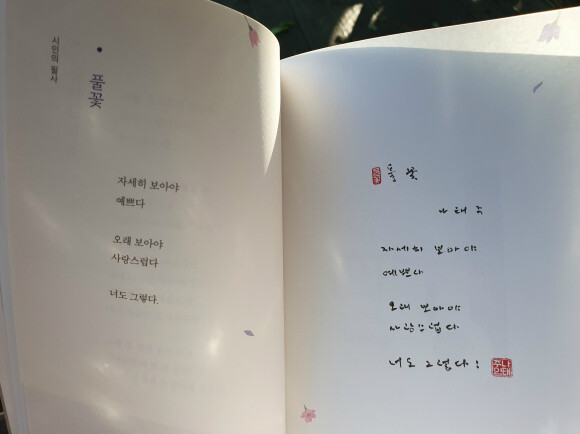 시인의 필사
풀꽃
자세히 보아야
예쁘다
오래 보아야
사랑스럽다
너도 그렇다.
풀꽃
나태주
자세히 보아야
예쁘다
오래 보아야
사랑스럽다
너도 그렇다.